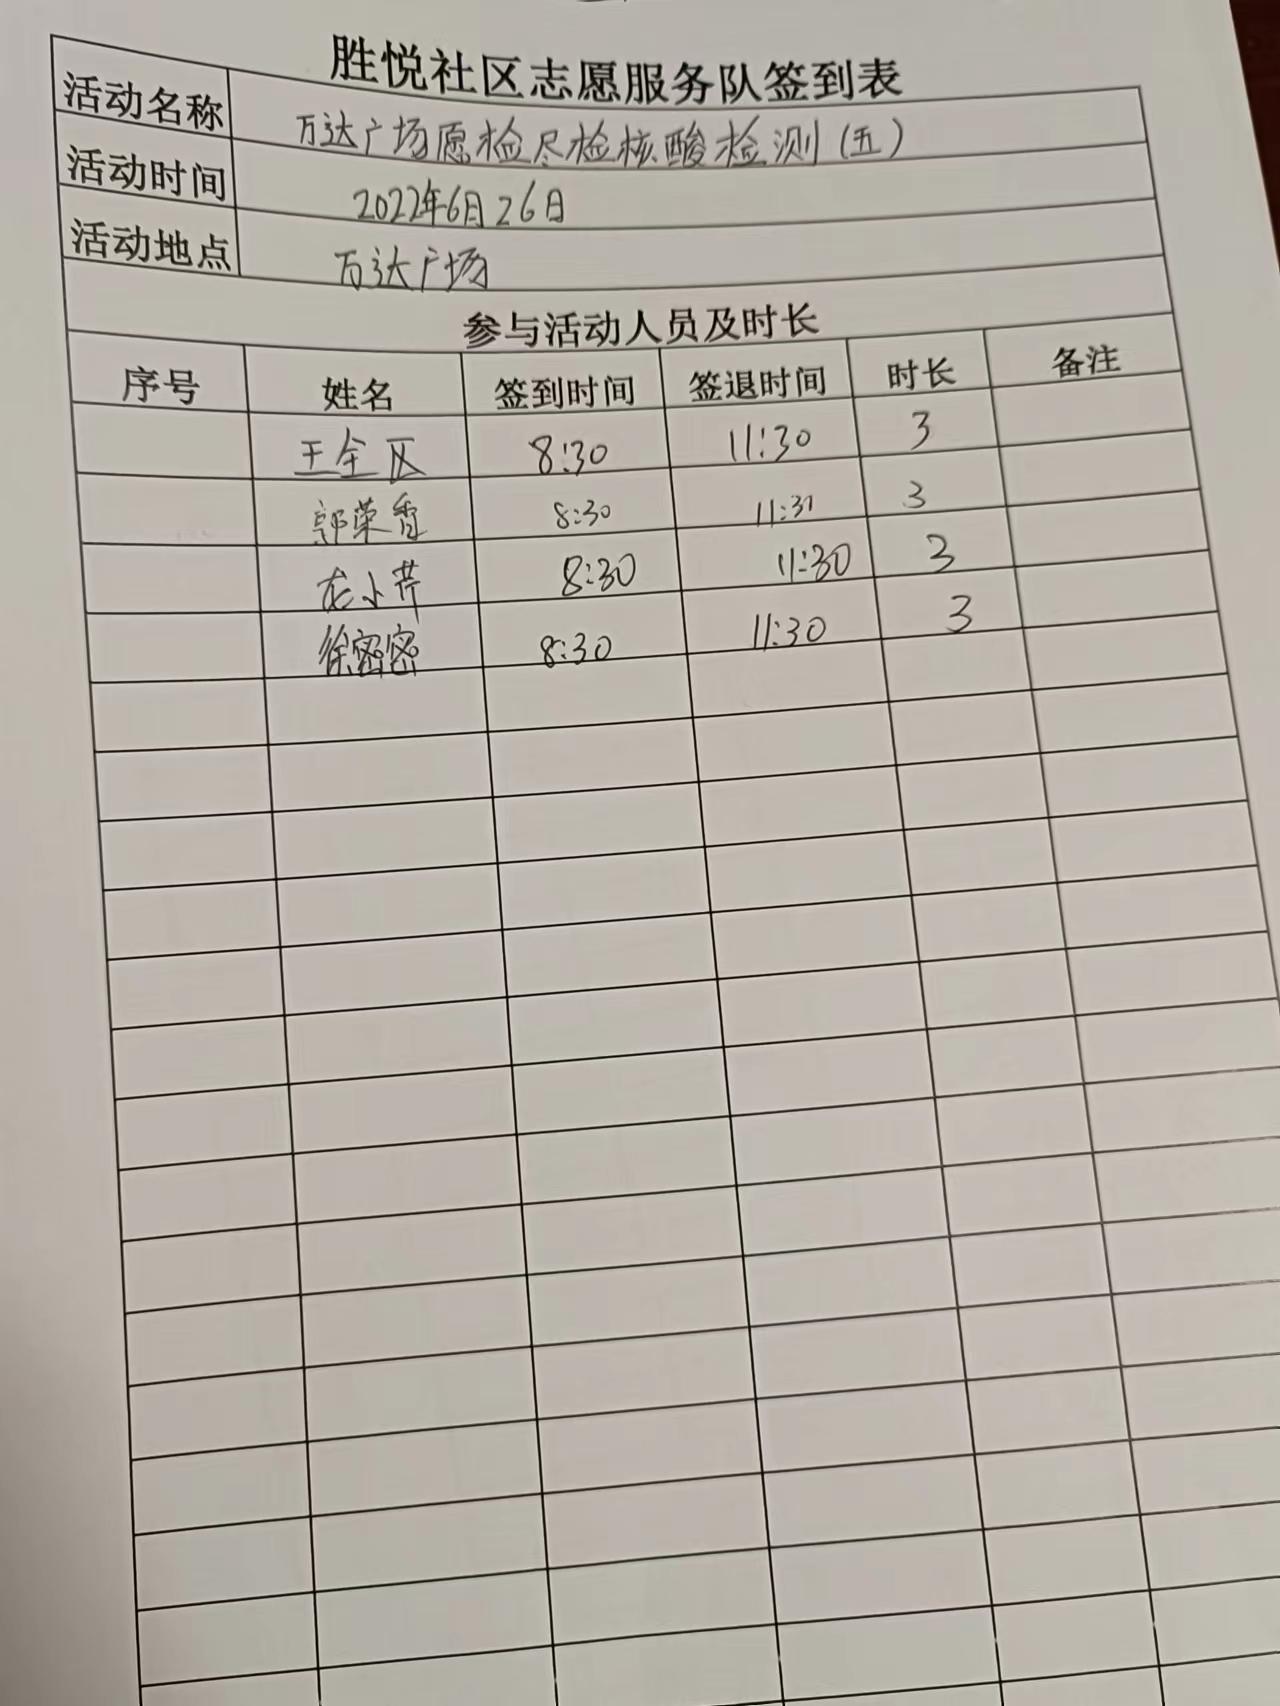 胜悦社区志愿服务队签到表
活动名称 万达广场愿检尽检核酸检测(五)
活动时间 2022年6月26日
活动地点 万达广场
参与活动人员及时长
序号 姓名 签到时间 签退时间 时长 备注
王全区 8:30 11:30 3
郭荣香 8:30 11:31 3
小芹 8:30 11:30 3
徐密密 8:30 11:30 3